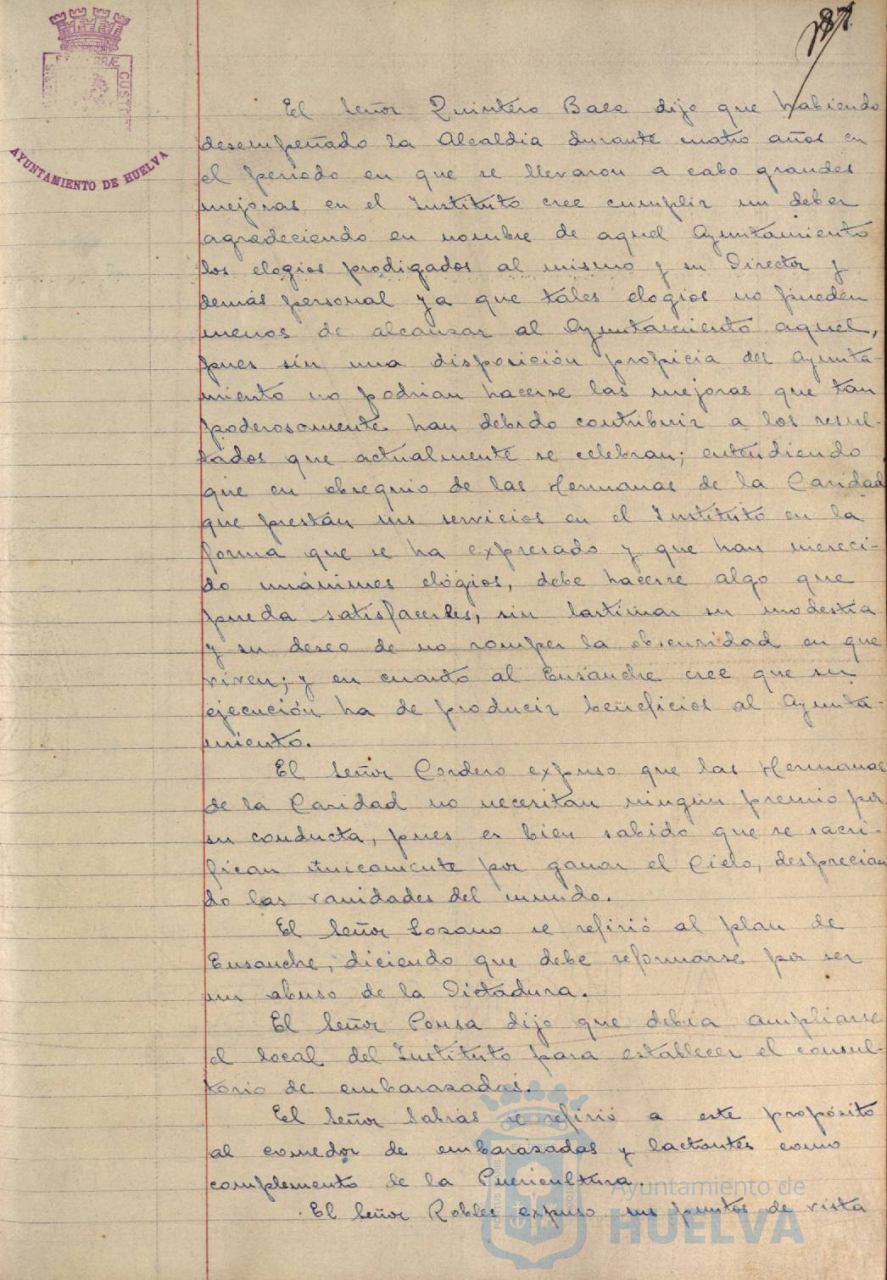 87
AYUNTAMIENTO DE HUELVA
El Señor Quintero Baez dijo que habiendo
desempeñado la Alcaldia durante cuatro años en
el periodo en que se llevaron a cabo grandes
mejoras en el Instituto cree cumplir un deber
agradeciendo en nombre de aquel Ayuntamiento
los elogios prodigados al mismo y su Director y
demás personal ya que tales elogios no pueden
menos de alcanzar al Ayuntamiento aquel,
pues sin una disposición propicia del Ayunta-
miento no podrian hacerse las mejoras que tan
poderosamente han debido contribuir a los resul-
tados que actualmente se celebran; entendiendo
que en obsequio de las Hermanas de la Caridad
que prestan sus servicios en el Instituto en la
forma que se ha expresado y que han mereci-
do unánimes elógios, debe hacerse algo que
pueda satisfacerles, sin lastimar su modestia
y su deseo de no romper la obscuridad en que
viven; y en cuanto al Ensanche cree que su
ejecución ha de producir beneficios al Ayunta-
miento.
El Señor Cordero expuso que las Hermanas
de la Caridad no necesitan ningun premio por
su conducta, pues es bien sabido que se sacri-
fican únicamente por ganar el Cielo, desprecian
do las vanidades del mundo.
El Señor Lozano se refirió al plan de
Ensanche, diciendo que debe reformarse por ser
un abuso de la Dictadura.
El Señor Ponsa dijo que debia ampliarse
el local del Instituto para establecer el consul-
torio de embarazadas.
El Señor Sabrás se refirió a este propósito
al comedor de embarazadas y lactantes como
complemento de la Puericultura.
El Señor Robles expuso sus puntos de vista
Ayuntamiento de
HUELVA